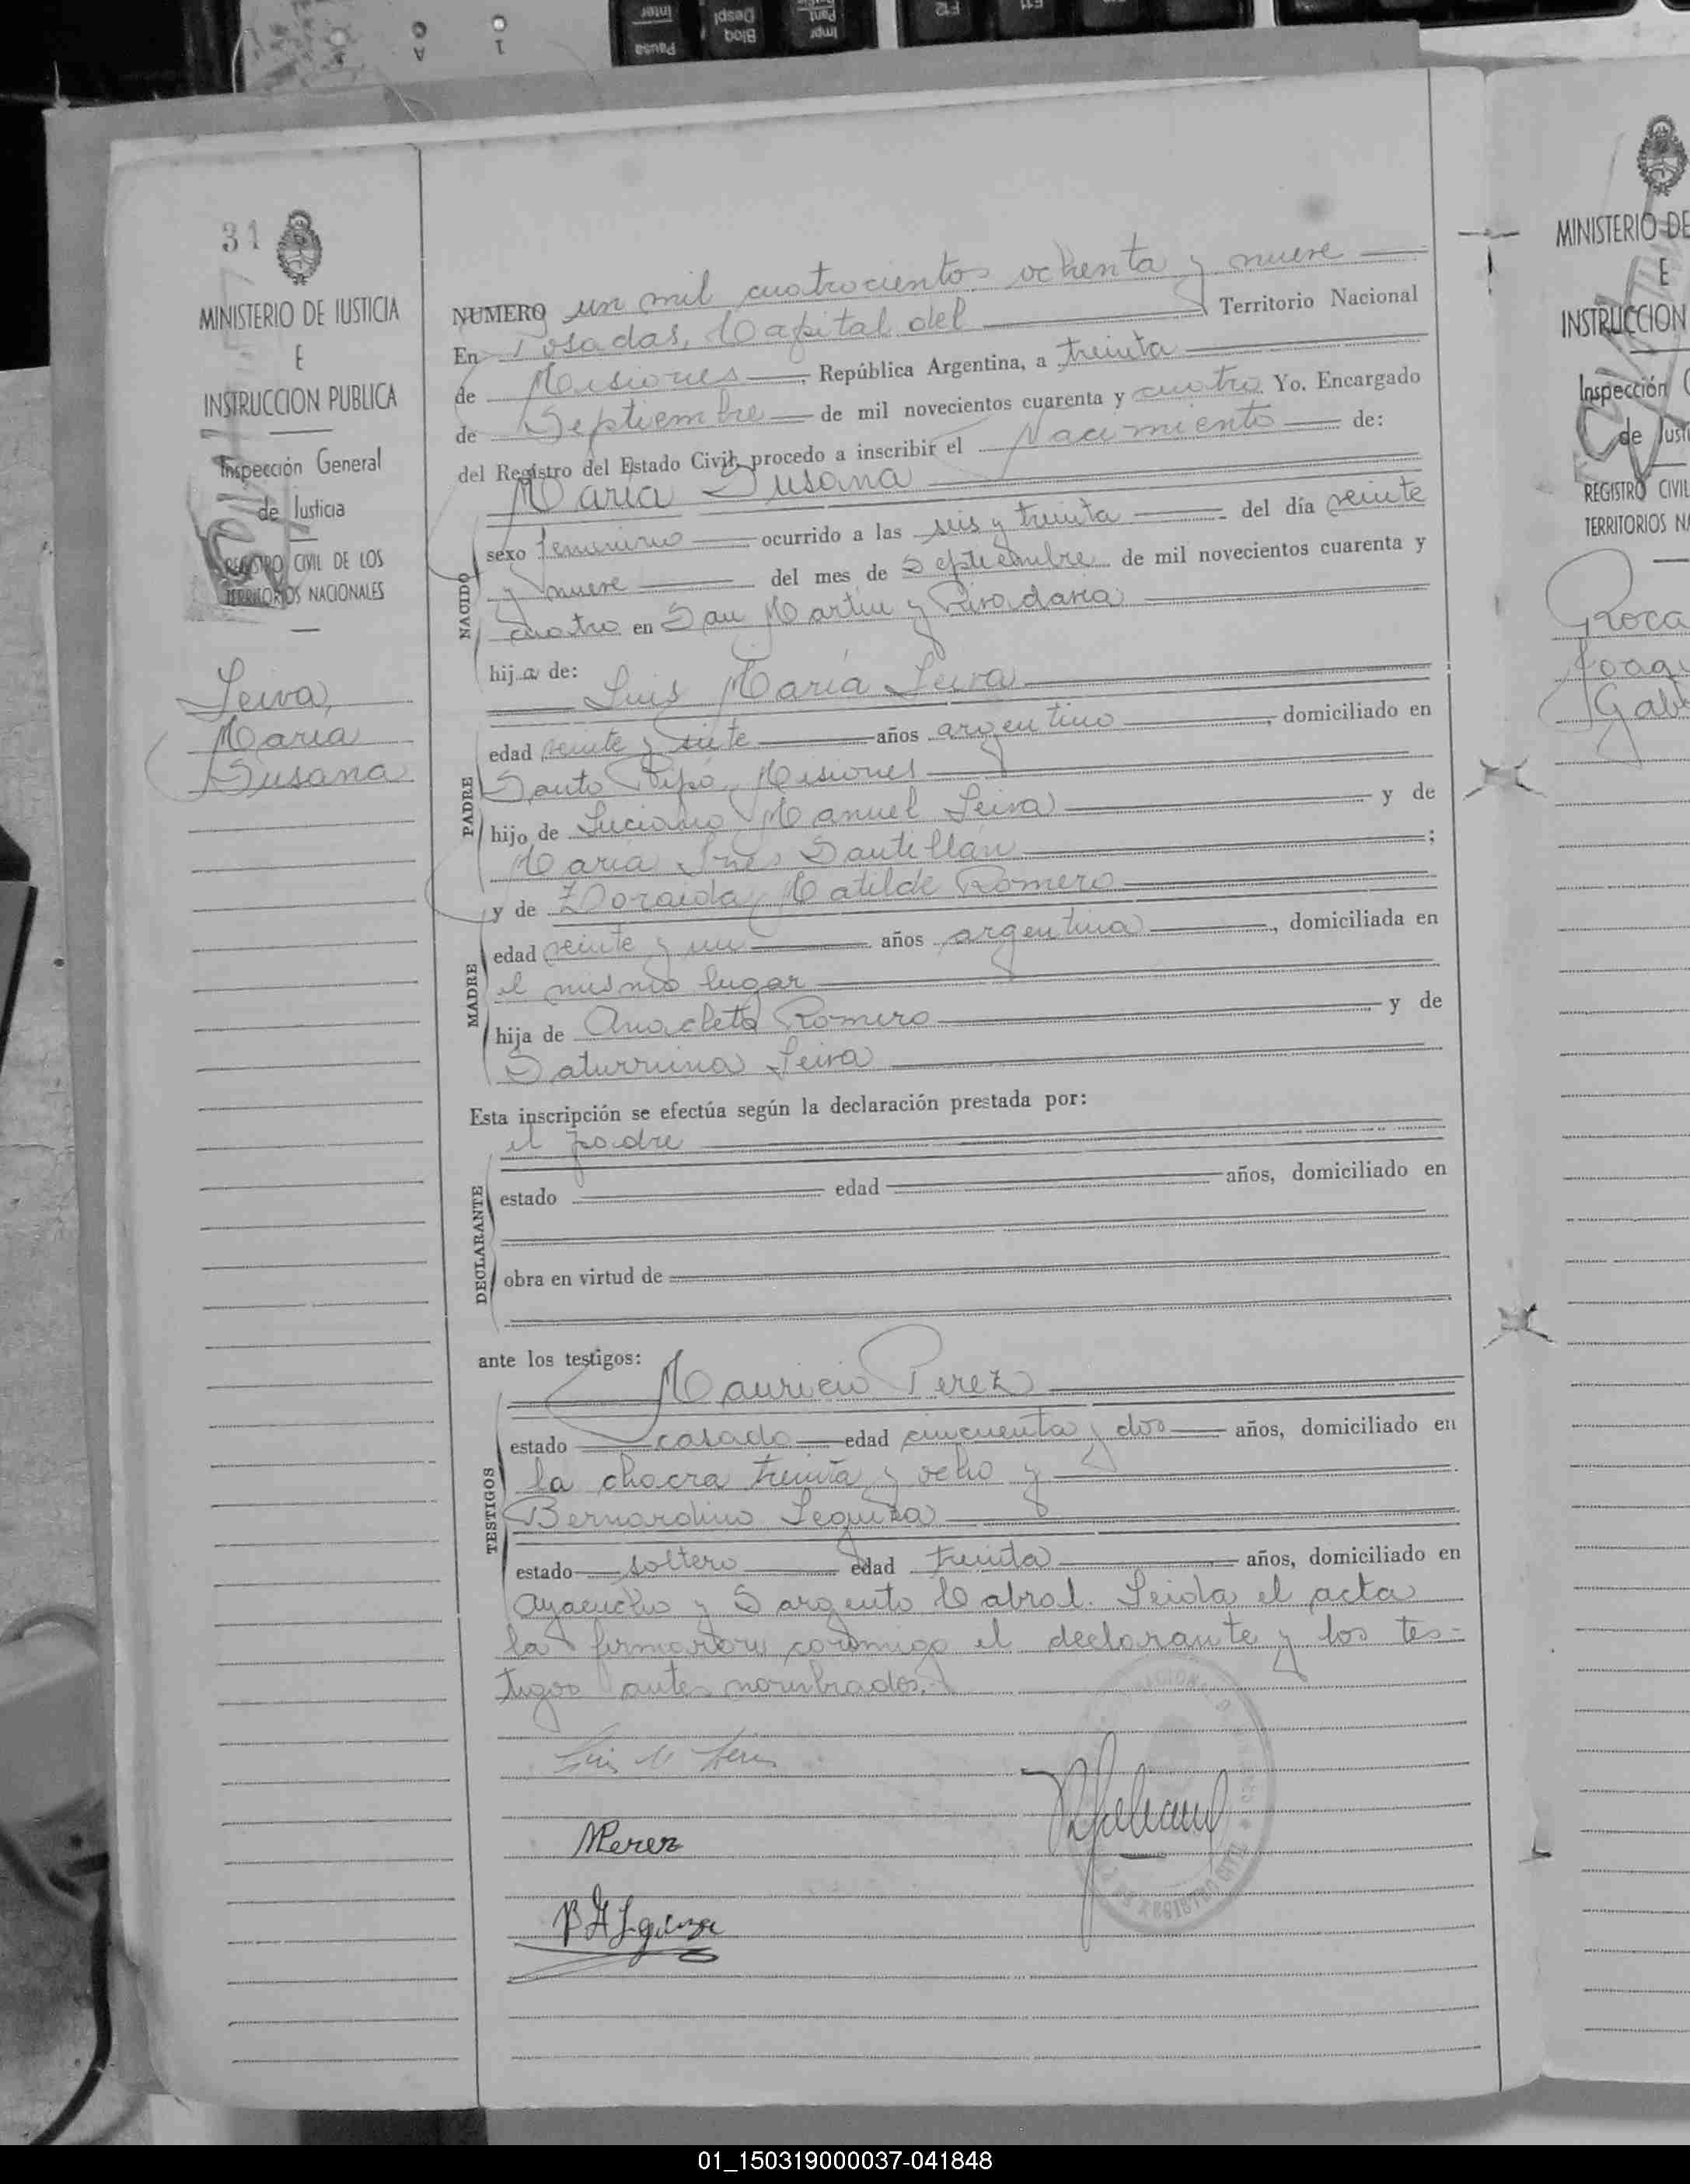 Pausa
Inter
Bloq
Despl
Impr
Pant
F12
F11
1
A
31
MINISTERIO DE JUSTICIA
E
INSTRUCCION PUBLICA
Inspección General
de Justicia
REGISTRO CIVIL DE LOS
TERRITORIOS NACIONALES
Leiva,
Maria
Susana
NUMERO un mil cuatrocientos ochenta y nueve
En Posadas, Capital del Territorio Nacional
de Misiones, República Argentina, a treinta
de Septiembre de mil novecientos cuarenta y cuatro Yo. Encargado
del Registro del Estado Civil, procedo a inscribir el Nacimiento de:
María Susana
NACIDO
sexo femenino ocurrido a las seis y treinta del día veinte
y nueve del mes de Septiembre de mil novecientos cuarenta y
cuatro en San Martin y Rivadavia
hija de:
Luis María Leiva
PADRE
edad veinte y siete años argentino, domiciliado en
Santo Pipó, Misiones
hijo de Luciano Manuel Leiva y de
Maria Inés Santillán;
y de Zoraida Matilde Romero
MADRE
edad veinte y un años argentina, domiciliada en
el mismo lugar
hija de Anacleto Romero y de
Saturnina Leiva
Esta inscripción se efectúa según la declaración prestada por:
el padre
DECLARANTE
estado edad años, domiciliado en
obra en virtud de
ante los testigos:
Mauricio Perez
TESTIGOS
estado casado edad cincuenta y dos años, domiciliado en
la chacra treinta y ocho y
Bernardino Leguiza
estado soltero edad treinta años, domiciliado en
Ayacucho y Sargento Cabral. Leida el acta
la firmaron conmigo el declarante y los tes-
tigos antes nombrados.
Luis M Leiva
MPerez
REGISTRO CIVIL
MINISTERIO DE
E
INSTRUCCION
Inspección
de Justi
REGISTRO CIVIL
TERRITORIOS NA
Roca
Joaqu
Gab
01_150319000037-041848